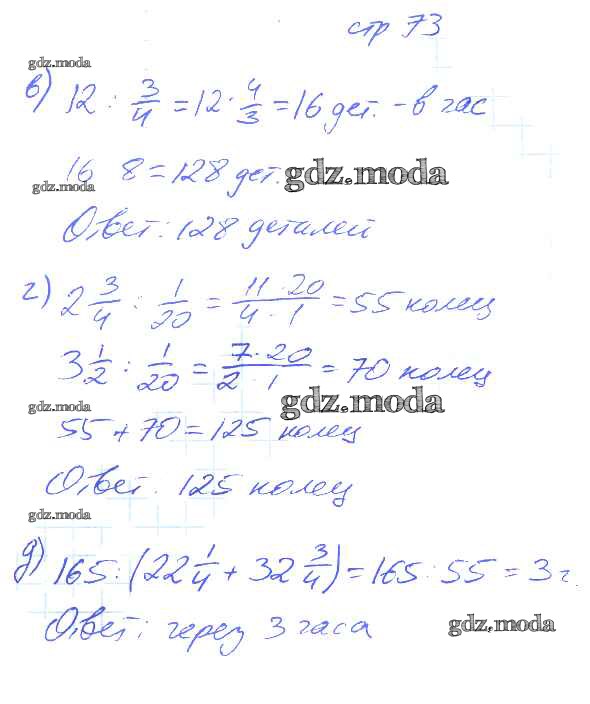 стр 73
gdz.moda
в) 12 : 3/4 = 12 · 4/3 = 16 дет. - в час
16 8 = 128 дет. gdz.moda
gdz.moda
Ответ: 128 деталей
г) 2 3/4 : 1/20 = 11·20/4·1 = 55 колец
3 1/2 : 1/20 = 7·20/2·1 = 70 колец
gdz.moda gdz.moda
55 + 70 = 125 колец
Ответ. 125 колец
gdz.moda
д) 165 : (22 1/4 + 32 3/4) = 165 : 55 = 3 г.
Ответ: через 3 часа gdz.moda